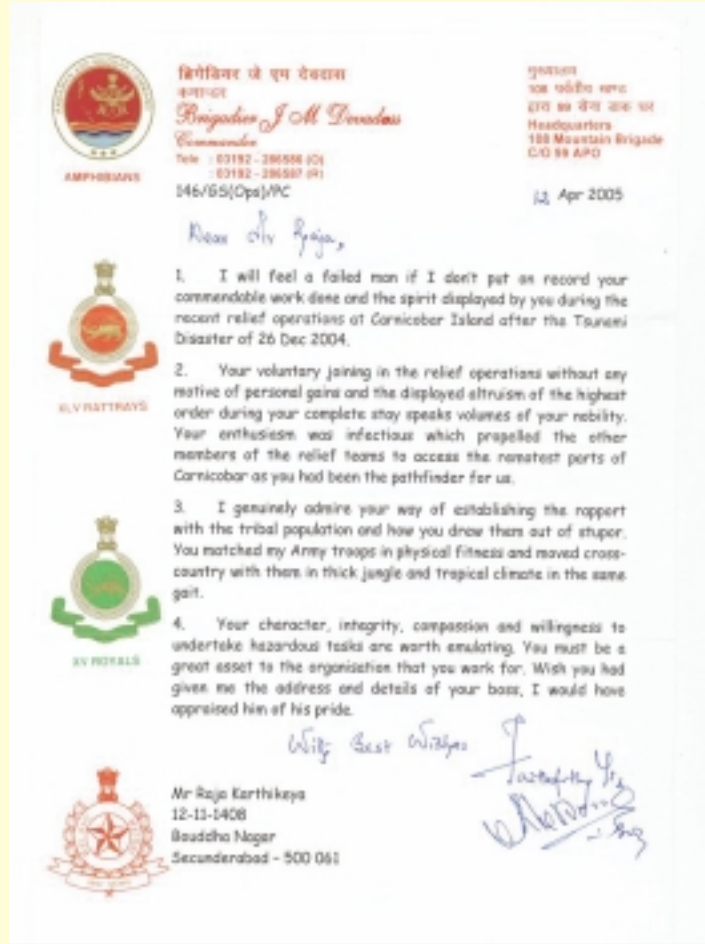 ब्रिगेडियर जे एम देवदास
कमान्डर
Brigadier J M Devadass
Commander
Tele : 03192 - 266586 (O)
: 03192 - 266587 (R)
146/GS(Ops)/PC
AMPHIBIANS
मुख्यालय
108 पर्वतीय ब्रिगेड
द्वारा 99 सेना डाक घर
Headquarters
108 Mountain Brigade
C/O 99 APO
12 Apr 2005
Dear Mr Raja,
1. I will feel a failed man if I don't put on record your
commendable work done and the spirit displayed by you during the
recent relief operations at Carnicobar Island after the Tsunami
Disaster of 26 Dec 2004.
XLV RATTRAYS
2. Your voluntary joining in the relief operations without any
motive of personal gains and the displayed altruism of the highest
order during your complete stay speaks volumes of your nobility.
Your enthusiasm was infectious which propelled the other
members of the relief teams to access the remotest parts of
Carnicobar as you had been the pathfinder for us.
3. I genuinely admire your way of establishing the rapport
with the tribal population and how you drew them out of stupor.
You matched my Army troops in physical fitness and moved cross-
country with them in thick jungle and tropical climate in the same
gait.
XV ROYALS
4. Your character, integrity, compassion and willingness to
undertake hazardous tasks are worth emulating. You must be a
great asset to the organisation that you work for. Wish you had
given me the address and details of your boss, I would have
appraised him of his pride.
With Best Wishes
Mr Raja Karthikeya
12-11-1408
Bouddha Nagar
Secunderabad - 500 061